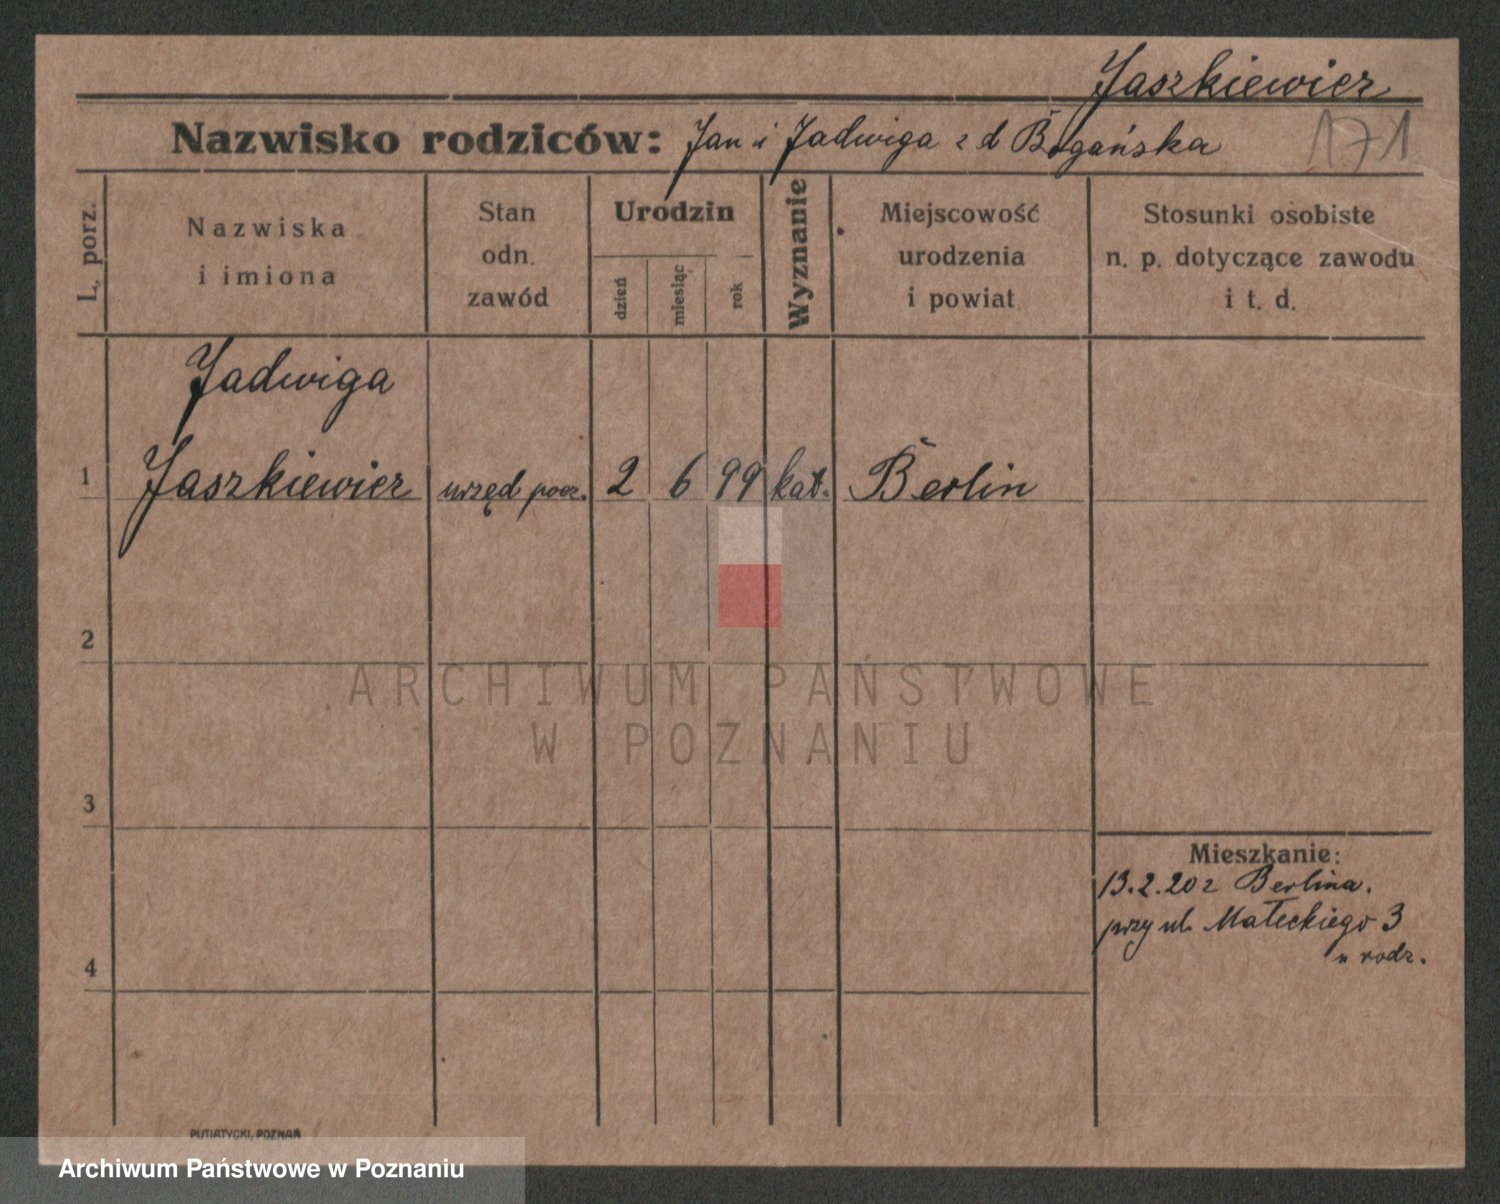 Jaszkiewicz
Nazwisko rodziców: Jan i Jadwiga z d Bogańska
171
L. porz.
Nazwiska
i imiona
Stan
odn.
zawód
Urodzin
dzień
miesiąc
rok
Wyznanie
Miejscowość
urodzenia
i powiat
Stosunki osobiste
n. p. dotyczące zawodu
i t. d.
Jadwiga
1 Jaszkiewicz urzęd pocz. 2 6 99 kat. Berlin
2
ARCHIWUM PAŃSTWOWE
W POZNANIU
3
Mieszkanie:
13.2.20 z Berlina.
przy ul. Małeckiego 3
u rodz.
4
PUTIATYCKI, POZNAŃ
Archiwum Państwowe w Poznaniu